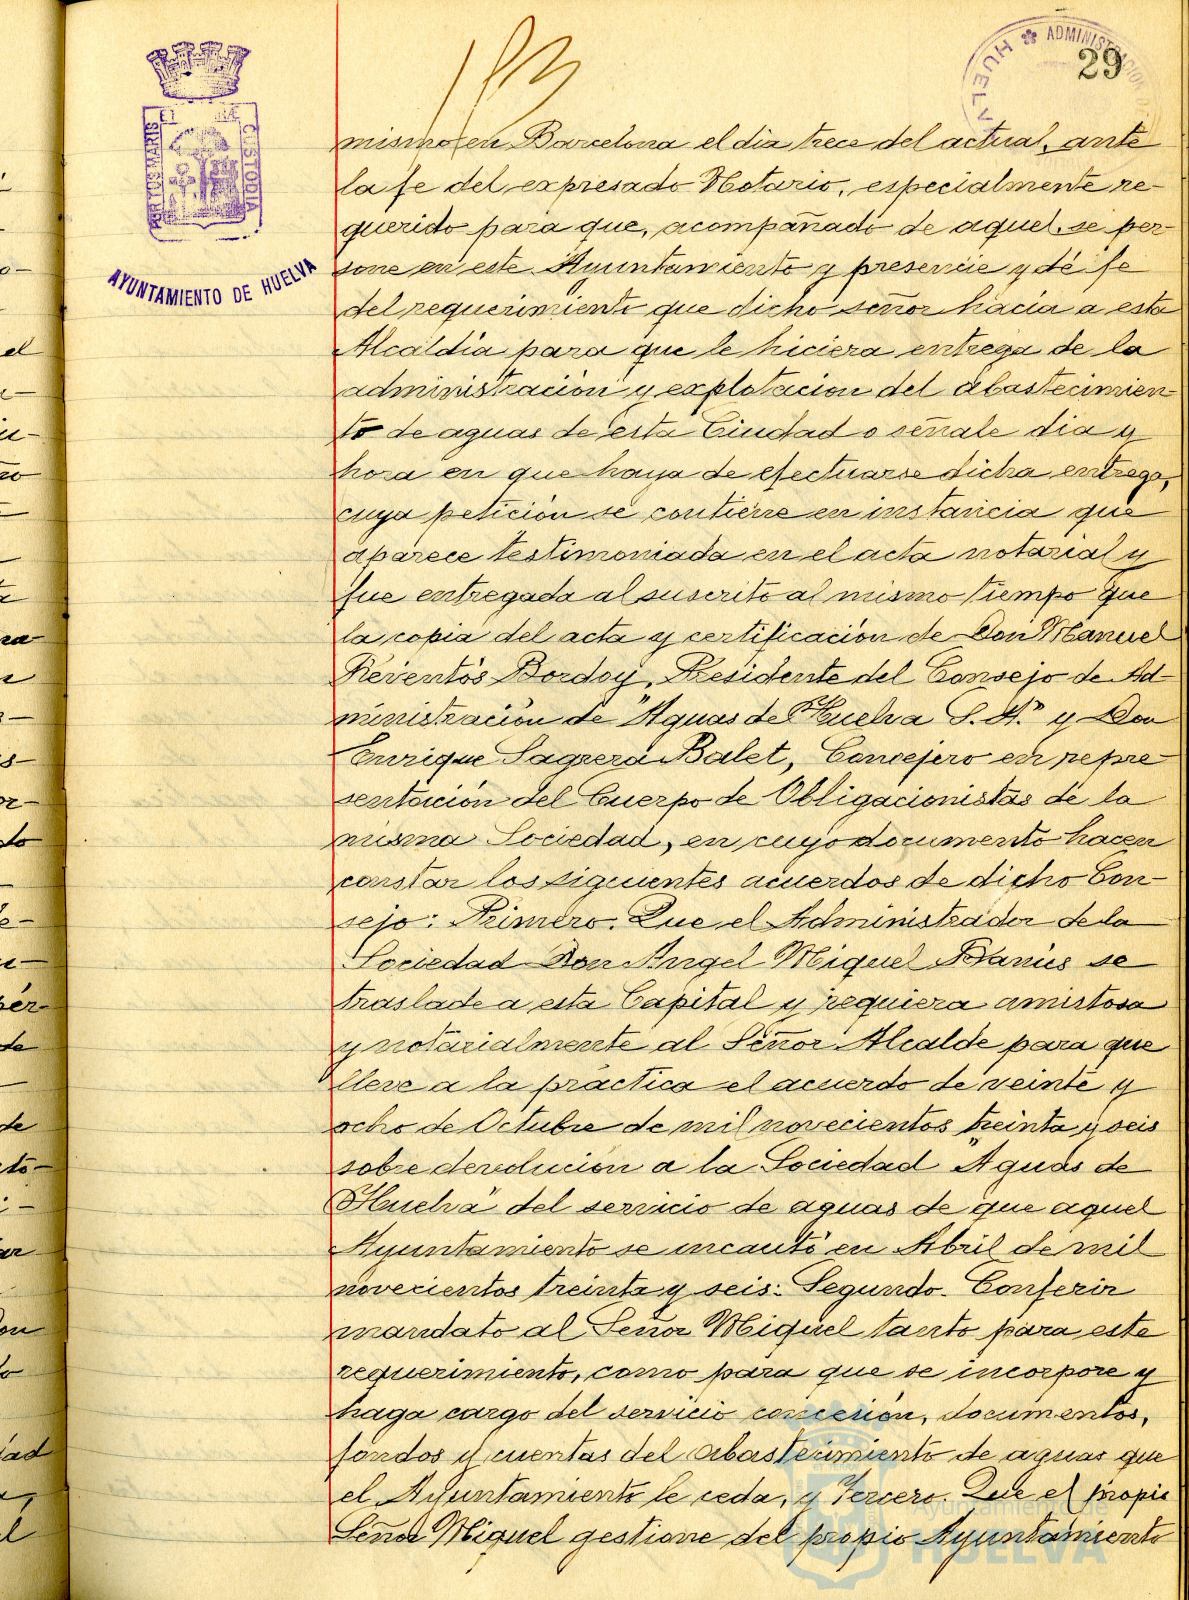 29
ADMINISTRACION
HUELV
PORTUS MARIS ET TERRÆ CUSTODIA
AYUNTAMIENTO DE HUELVA
mismo en Barcelona el dia trece del actual, ante
la fe del expresado Notario, especialmente re-
querido para que, acompañado de aquel, se per-
sone en este Ayuntamiento y presencie y dé fe
del requerimiento que dicho señor hacia a esta
Alcaldía para que le hiciera entrega de la
administración y explotacion del abastecimien-
to de aguas de esta Ciudad o señale dia y
hora en que haya de efectuarse dicha entrega,
cuya petición se contiene en instancia que
aparece testimoniada en el acta notarial y
fue entregada al suscrito al mismo tiempo que
la copia del acta y certificación de Don Manuel
Reventós Bordoy, Presidente del Consejo de Ad-
ministración de "Aguas de Huelva S.A." y Don
Enrique Sagrera Balet, Concejero en repre
sentación del Cuerpo de Obligacionistas de la
misma Sociedad, en cuyo documento hacen
constar los siguientes acuerdos de dicho Con-
sejo: Primero. Que el Administrador de la
Sociedad Don Angel Miquel Banús se
traslade a esta Capital y requiera amistosa
y notarialmente al Señor Alcalde para que
lleve a la práctica el acuerdo de veinte y
ocho de Octubre de mil novecientos treinta y seis
sobre devolución a la Sociedad "Aguas de
Huelva" del servicio de aguas de que aquel
Ayuntamiento se incautó en Abril de mil
novecientos treinta y seis: Segundo. Conferir
mandato al Señor Miquel tanto para este
requerimiento, como para que se incorpore y
haga cargo del servicio concesión, documentos,
fondos y cuentas del abastecimiento de aguas que
el Ayuntamiento le ceda, y Tercero. Que el propio
Señor Miquel gestione del propio Ayuntamiento
Ayuntamiento de
HUELVA